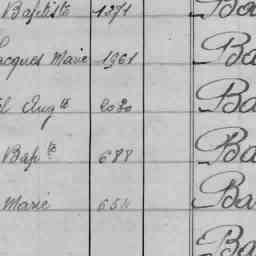 Baptiste 1271 Ba
Jacques Marie 1961 Ba
Augte 2020 Ba
Bapte 688 Ba
Marie Ba
Ba